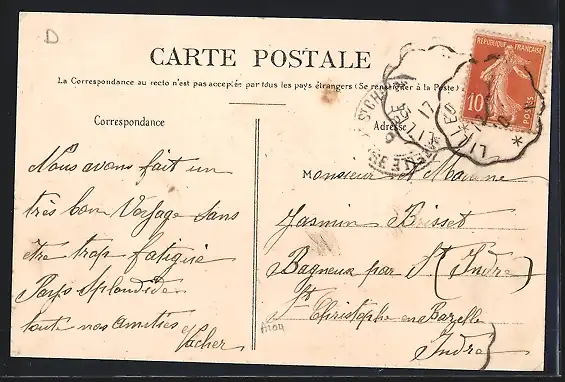 D
CARTE POSTALE
La Correspondance au recto n'est pas acceptée par tous les pays étrangers (Se renseigner à la Poste)
REPUBLIQUE FRANÇAISE
10
POSTES
Correspondance
Adresse
Nous avons fait un
très bon Voyage sans
être trop fatigué
Pays Splendide
toute nos amitiés
Vacher
Monsieur et Madame
Jasmin Brisset
Bagneux par St (Indre)
St Christophe en Bazelle
Indre